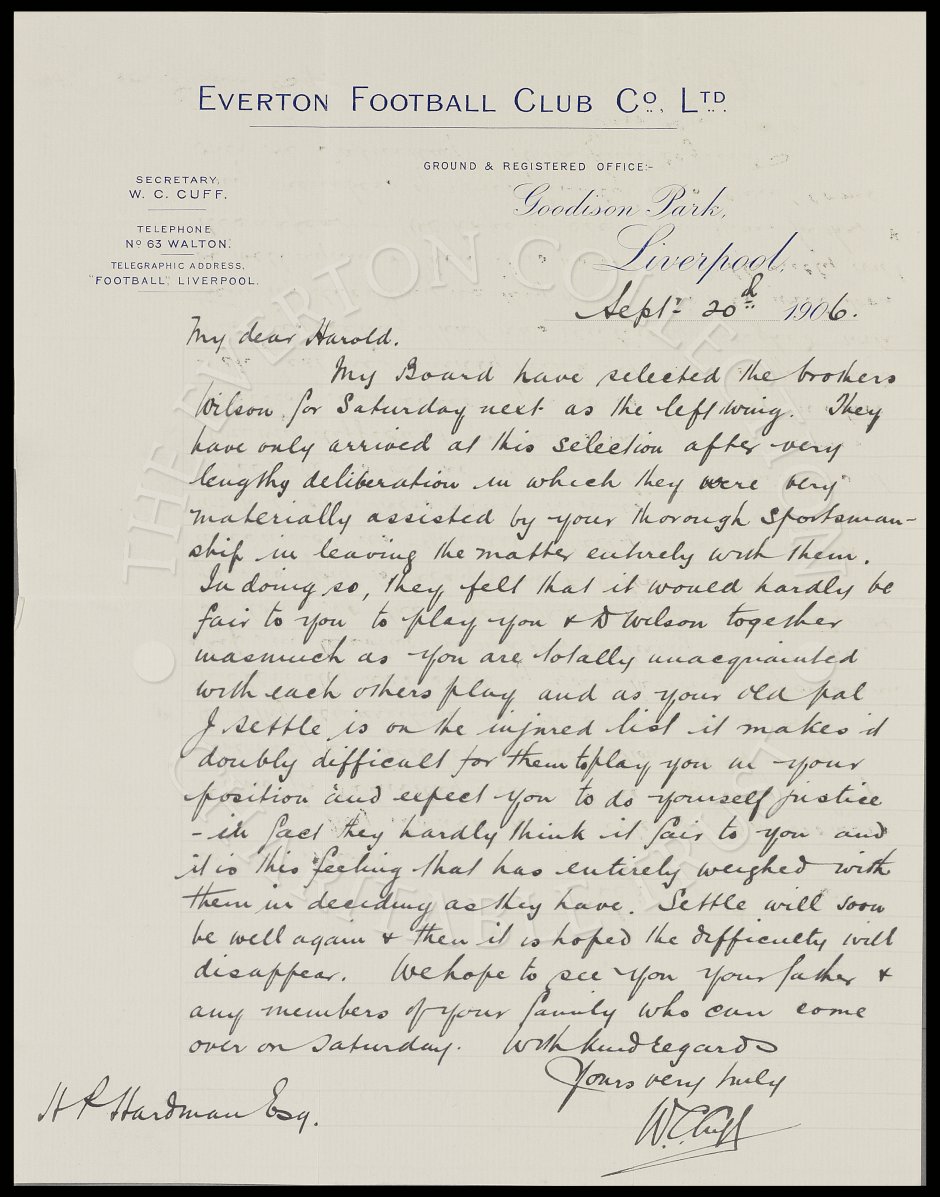 EVERTON FOOTBALL CLUB Co. LTD
GROUND & REGISTERED OFFICE:-
Goodison Park,
Liverpool,
SECRETARY,
W. C. CUFF.
TELEPHONE
No 63 WALTON.
TELEGRAPHIC ADDRESS,
"FOOTBALL", LIVERPOOL.
Septr 20th 1906.
My dear Harold.
My Board have selected the brothers
Wilson for Saturday next as the left wing. They
have only arrived at this selection after very
lengthy deliberation in which they were very
materially assisted by your thorough sportsman-
ship in leaving the matter entirely with them.
In doing so, they felt that it would hardly be
fair to you to play you & D Wilson together
inasmuch as you are totally unacquainted
with each others play and as your old pal
J Settle is on the injured list it makes it
doubly difficult for them to play you in your
position and expect you to do yourself justice
- in fact they hardly think it fair to you and
it is this feeling that has entirely weighed with
them in deciding as they have. Settle will soon
be well again & then it is hoped the difficulty will
disappear. We hope to see you your father &
any members of your family who can come
over on Saturday. With kind regards
Yours very truly
W.C.Cuff
H P Hardman Esq.
THE EVERTON COLLECTION
CHARITABLE TRUST